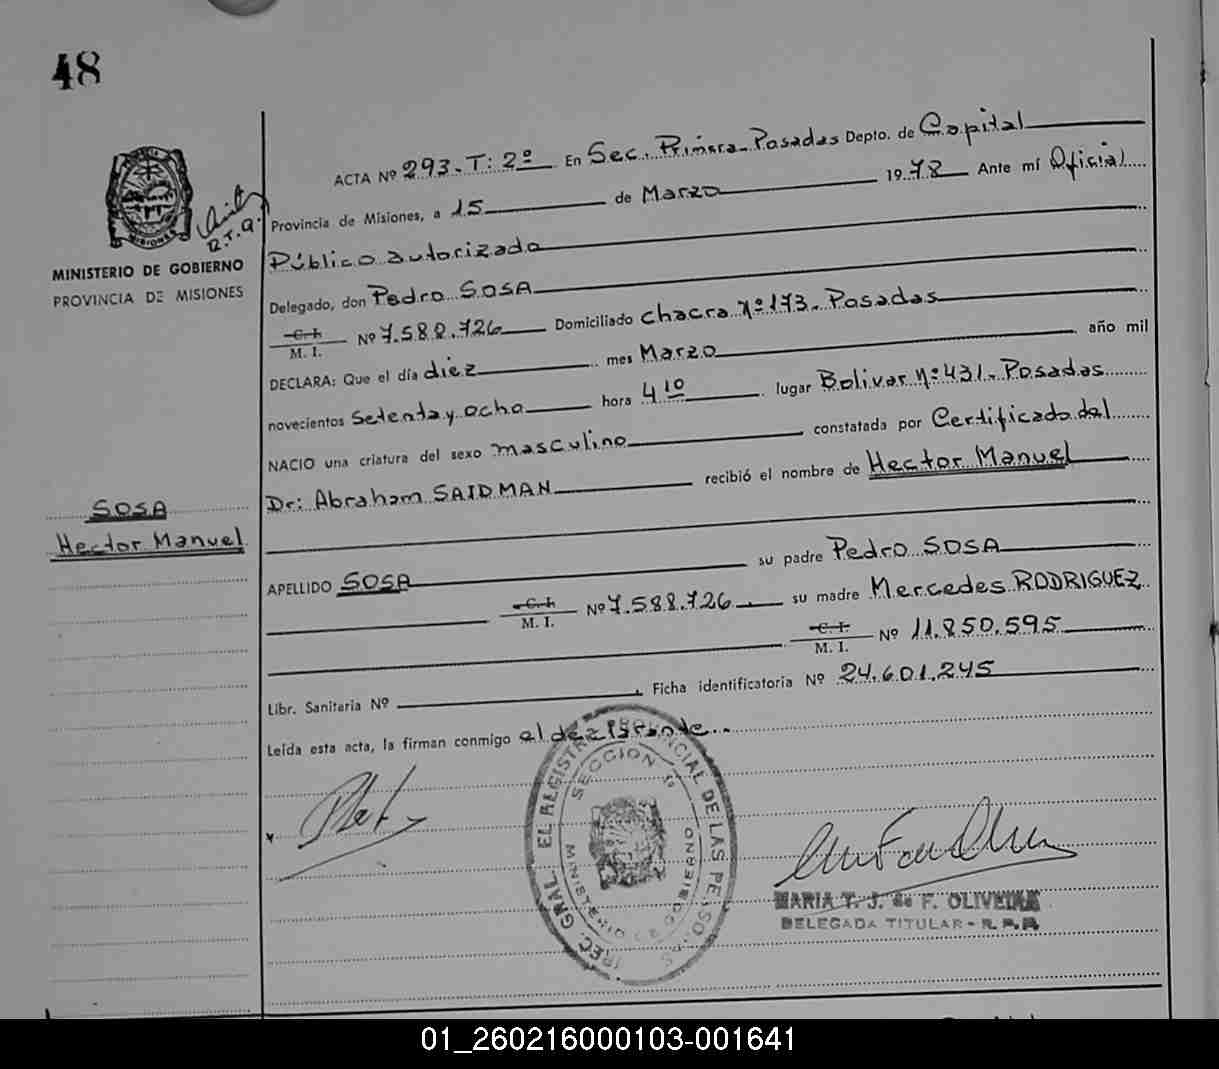 48
ACTA Nº 293. T: 2º En Sec. Primera - Posadas Depto. de Capital
Provincia de Misiones, a 15 de Marzo 1978 Ante mí Oficial
Público autorizado
Delegado, don Pedro SOSA
C. I.
M. I. Nº 7.588.726 Domiciliado chacra nº 173 - Posadas
DECLARA: Que el día diez mes Marzo año mil
novecientos setenta y ocho hora 4 10 lugar Bolivar nº 431 - Posadas
NACIO una criatura del sexo masculino constatada por Certificado del
Dr: Abraham SAIDMAN recibió el nombre de Hector Manuel
APELLIDO SOSA su padre Pedro SOSA
C. I.
M. I. Nº 7.588.726 su madre Mercedes RODRIGUEZ
C. I.
M. I. Nº 11.850.595
Libr. Sanitaria Nº Ficha identificatoria Nº 24.601.245
Leída esta acta, la firman conmigo el declarante
MINISTERIO DE GOBIERNO
PROVINCIA DE MISIONES
MISIONES
SOSA
Hector Manuel
PROVINCIAL DE LAS PERSONAS
SECCION 1º
MINISTERIO DE GOBIERNO
MARIA T. J. de F. OLIVEIRA
DELEGADA TITULAR - R. P. P.
01_260216000103-001641